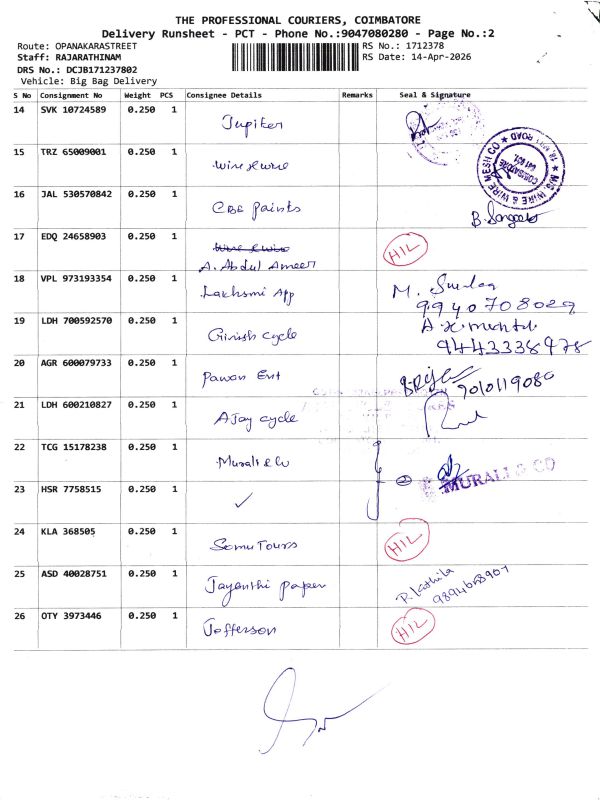 THE PROFESSIONAL COURIERS, COIMBATORE
Delivery Runsheet - PCT - Phone No.:9047080280 - Page No.:2
Route: OPANAKARASTREET
RS No.: 1712378
Staff: RAJARATHINAM
RS Date: 14-Apr-2026
DRS No.: DCJB171237802
Vehicle: Big Bag Delivery
S No Consignment No Weight PCS Consignee Details Remarks Seal & Signature
14 SVK 10724589 0.250 1
Jupiter
15 TRZ 65009001 0.250 1
wire & wire
WIRE & WIRE MESH CO
16 JAL 530570842 0.250 1
CBE Paints
17 EDQ 24658903 0.250 1
wire & wire
A. Abdul Ameer
HIL
18 VPL 973193354 0.250 1
Lakhsmi App
9940708029
19 LDH 700592570 0.250 1
Girish cycle
9443338978
20 AGR 600079733 0.250 1
Pawan Ent
7010119080
21 LDH 600210827 0.250 1
AJay cycle
22 TCG 15178238 0.250 1
Murali & Co
MURALI & CO
23 HSR 7758515 0.250 1
✓
24 KLA 368505 0.250 1
Somu Tours
HIL
25 ASD 40028751 0.250 1
Jayanthi paper
26 OTY 3973446 0.250 1
Jefferson
HIL